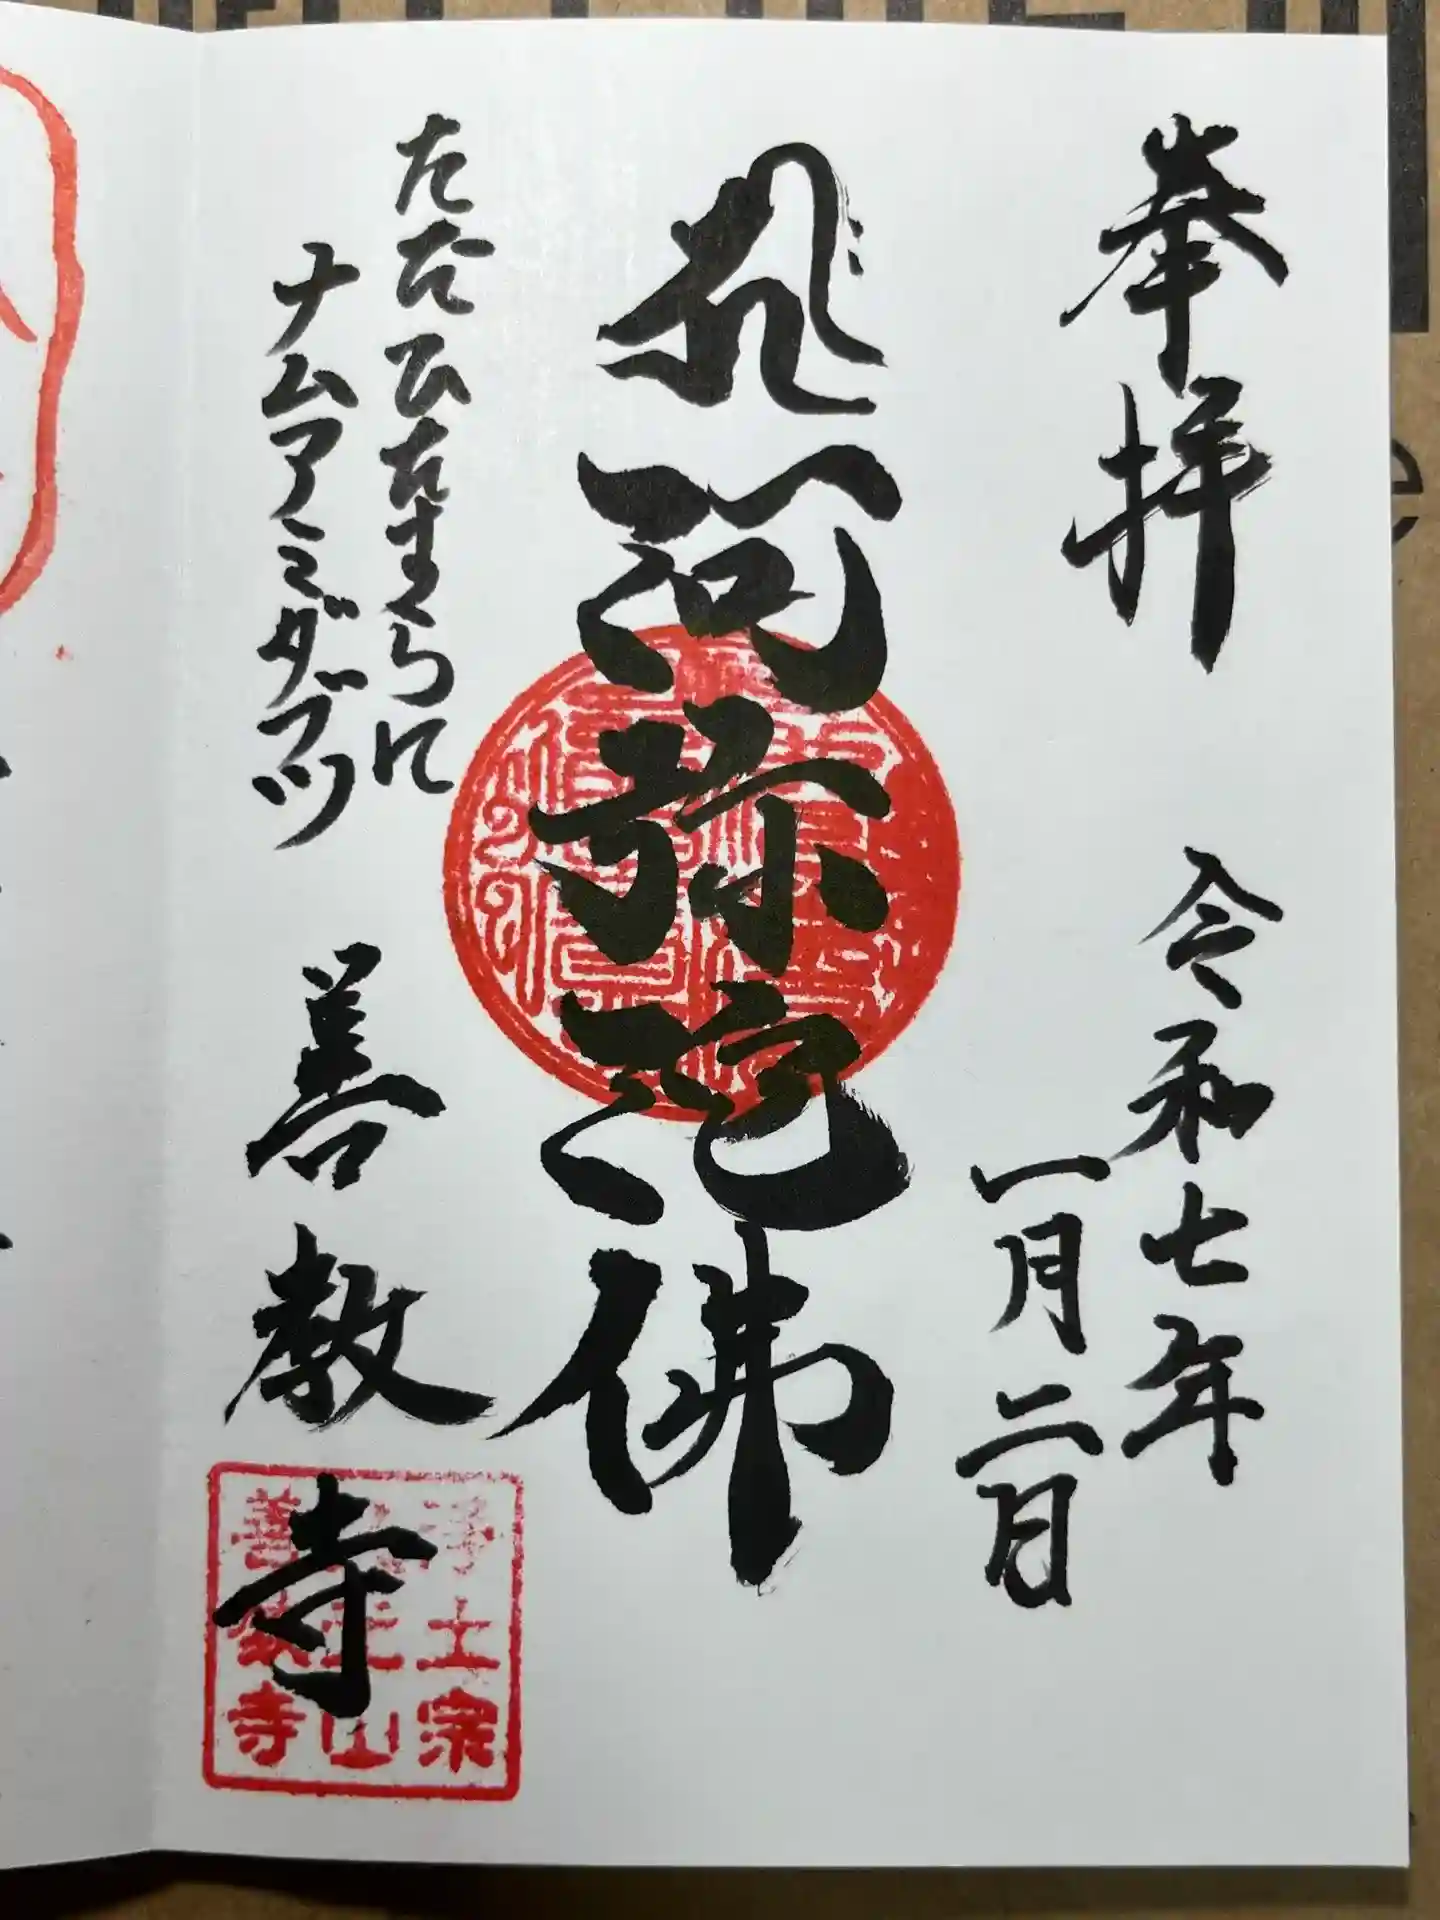 奉拝
令和七年
一月二日
阿弥陀佛
ただひたすらに
ナムアミダブツ
善教寺
浄土宗
善教寺